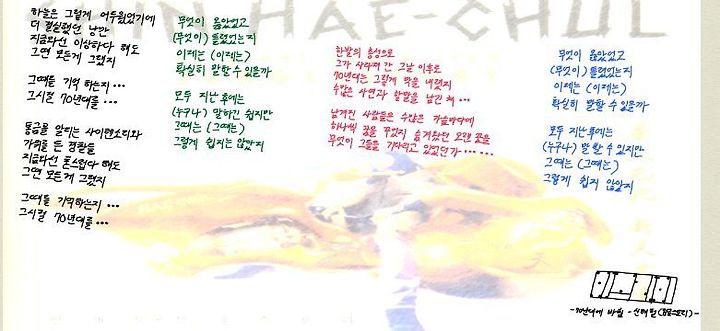 SHIN HAE-CHUL
하늘은 그렇게 어두웠었기에
더 절실했던 낭만
지금와선 이상하다 해도
그땐 모든게 그랬지
그때를 기억 하는지 ...
그시절 70년대를 ...
통금을 알리는 사이렌소리와
가위를 든 경찰들
지금와선 촌스럽다 해도
그땐 모든게 그랬지
그때를 기억하는지 ...
그시절 70년대를 ...
무엇이 옳았었고
(무엇이) 틀렸었는지
이제는 (이제는)
확실히 말할 수 있을까
모두 지난 후에는
(누구나) 말하긴 쉽지만
그때는 (그때는)
그렇게 쉽지는 않았지
한발의 총성으로
그가 사라져 간 그날 이후로
70년대는 그렇게 막을 내렸지
수많은 사연과 할말을 남긴 채 ...
남겨진 사람들은 수많은 가슴마다에
하나씩 꿈을 꾸었지 숨겨왔던 오랜 꿈을
무엇이 그들을 기다리고 있었던가 ... ...
무엇이 옳았었고
(무엇이) 틀렸었는지
이제는 (이제는)
확실히 말할 수 있을까
모두 지난후에는
(누구나) 말 할 수 있지만
그때는 (그때는)
그렇게 쉽지 않았지
-70년대에 바침 - 신해철